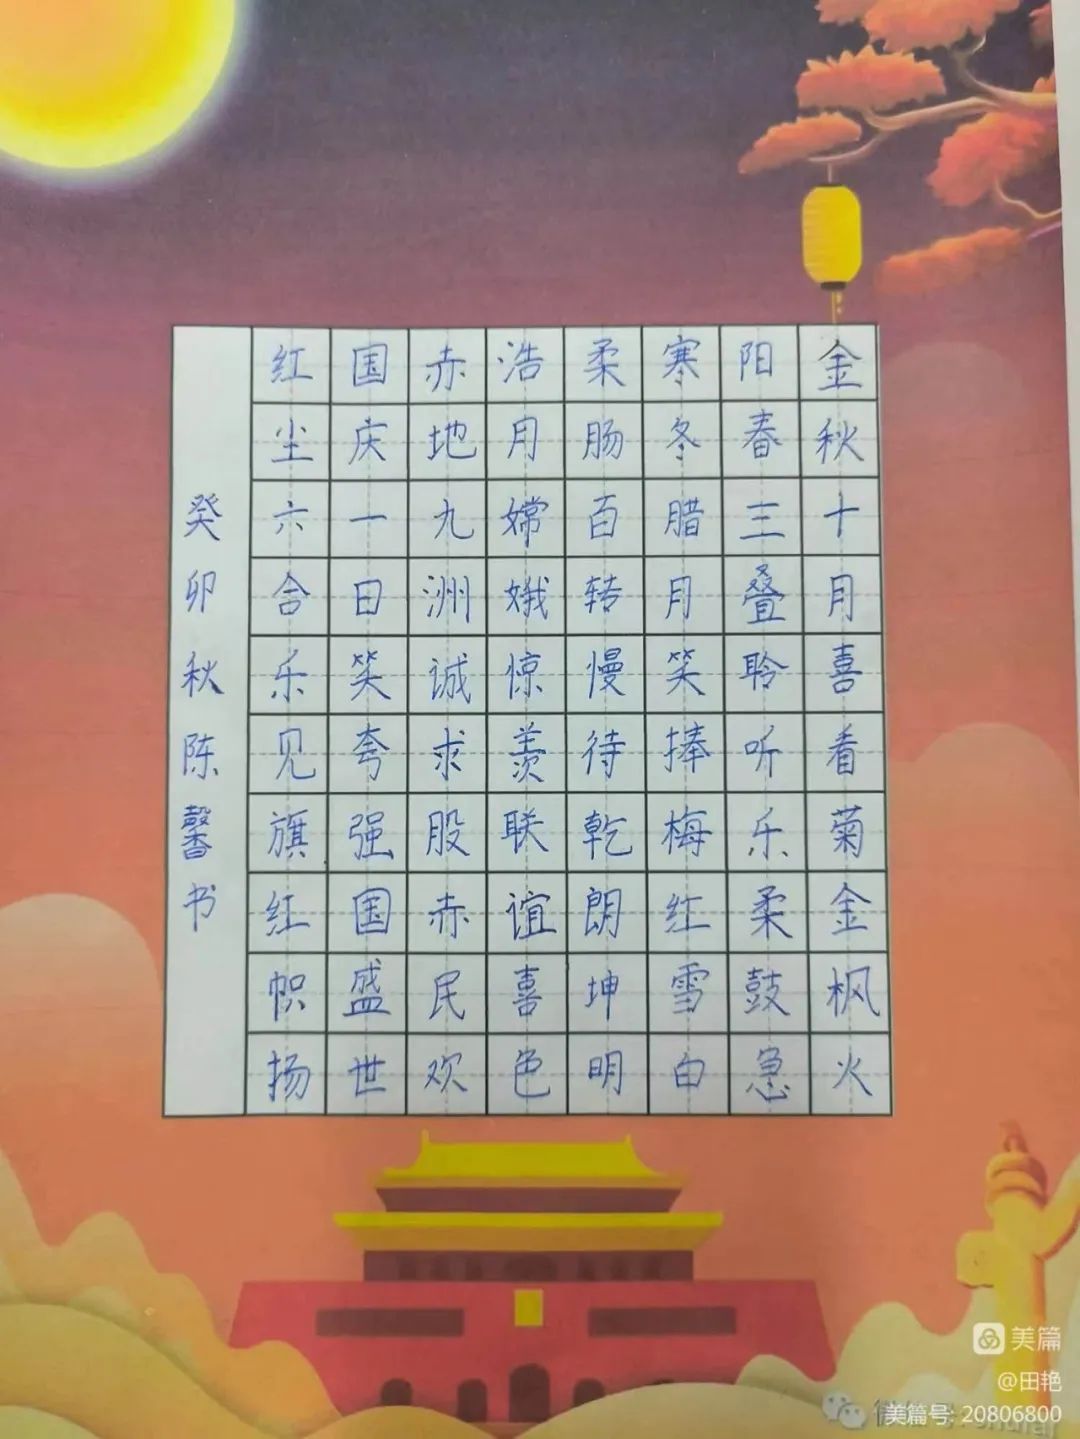 金秋十月喜看菊金枫火
阳春三叠聆听乐柔鼓急
寒冬腊月笑捧梅红雪白
柔肠百转慢待乾朗坤明
浩月嫦娥惊羡联谊喜色
赤地九洲诚求股赤民欢
国庆一日笑夸强国盛世
红尘六合乐见旗红帜扬
癸卯秋陈馨书
美篇
@田艳
美篇号: 20806800